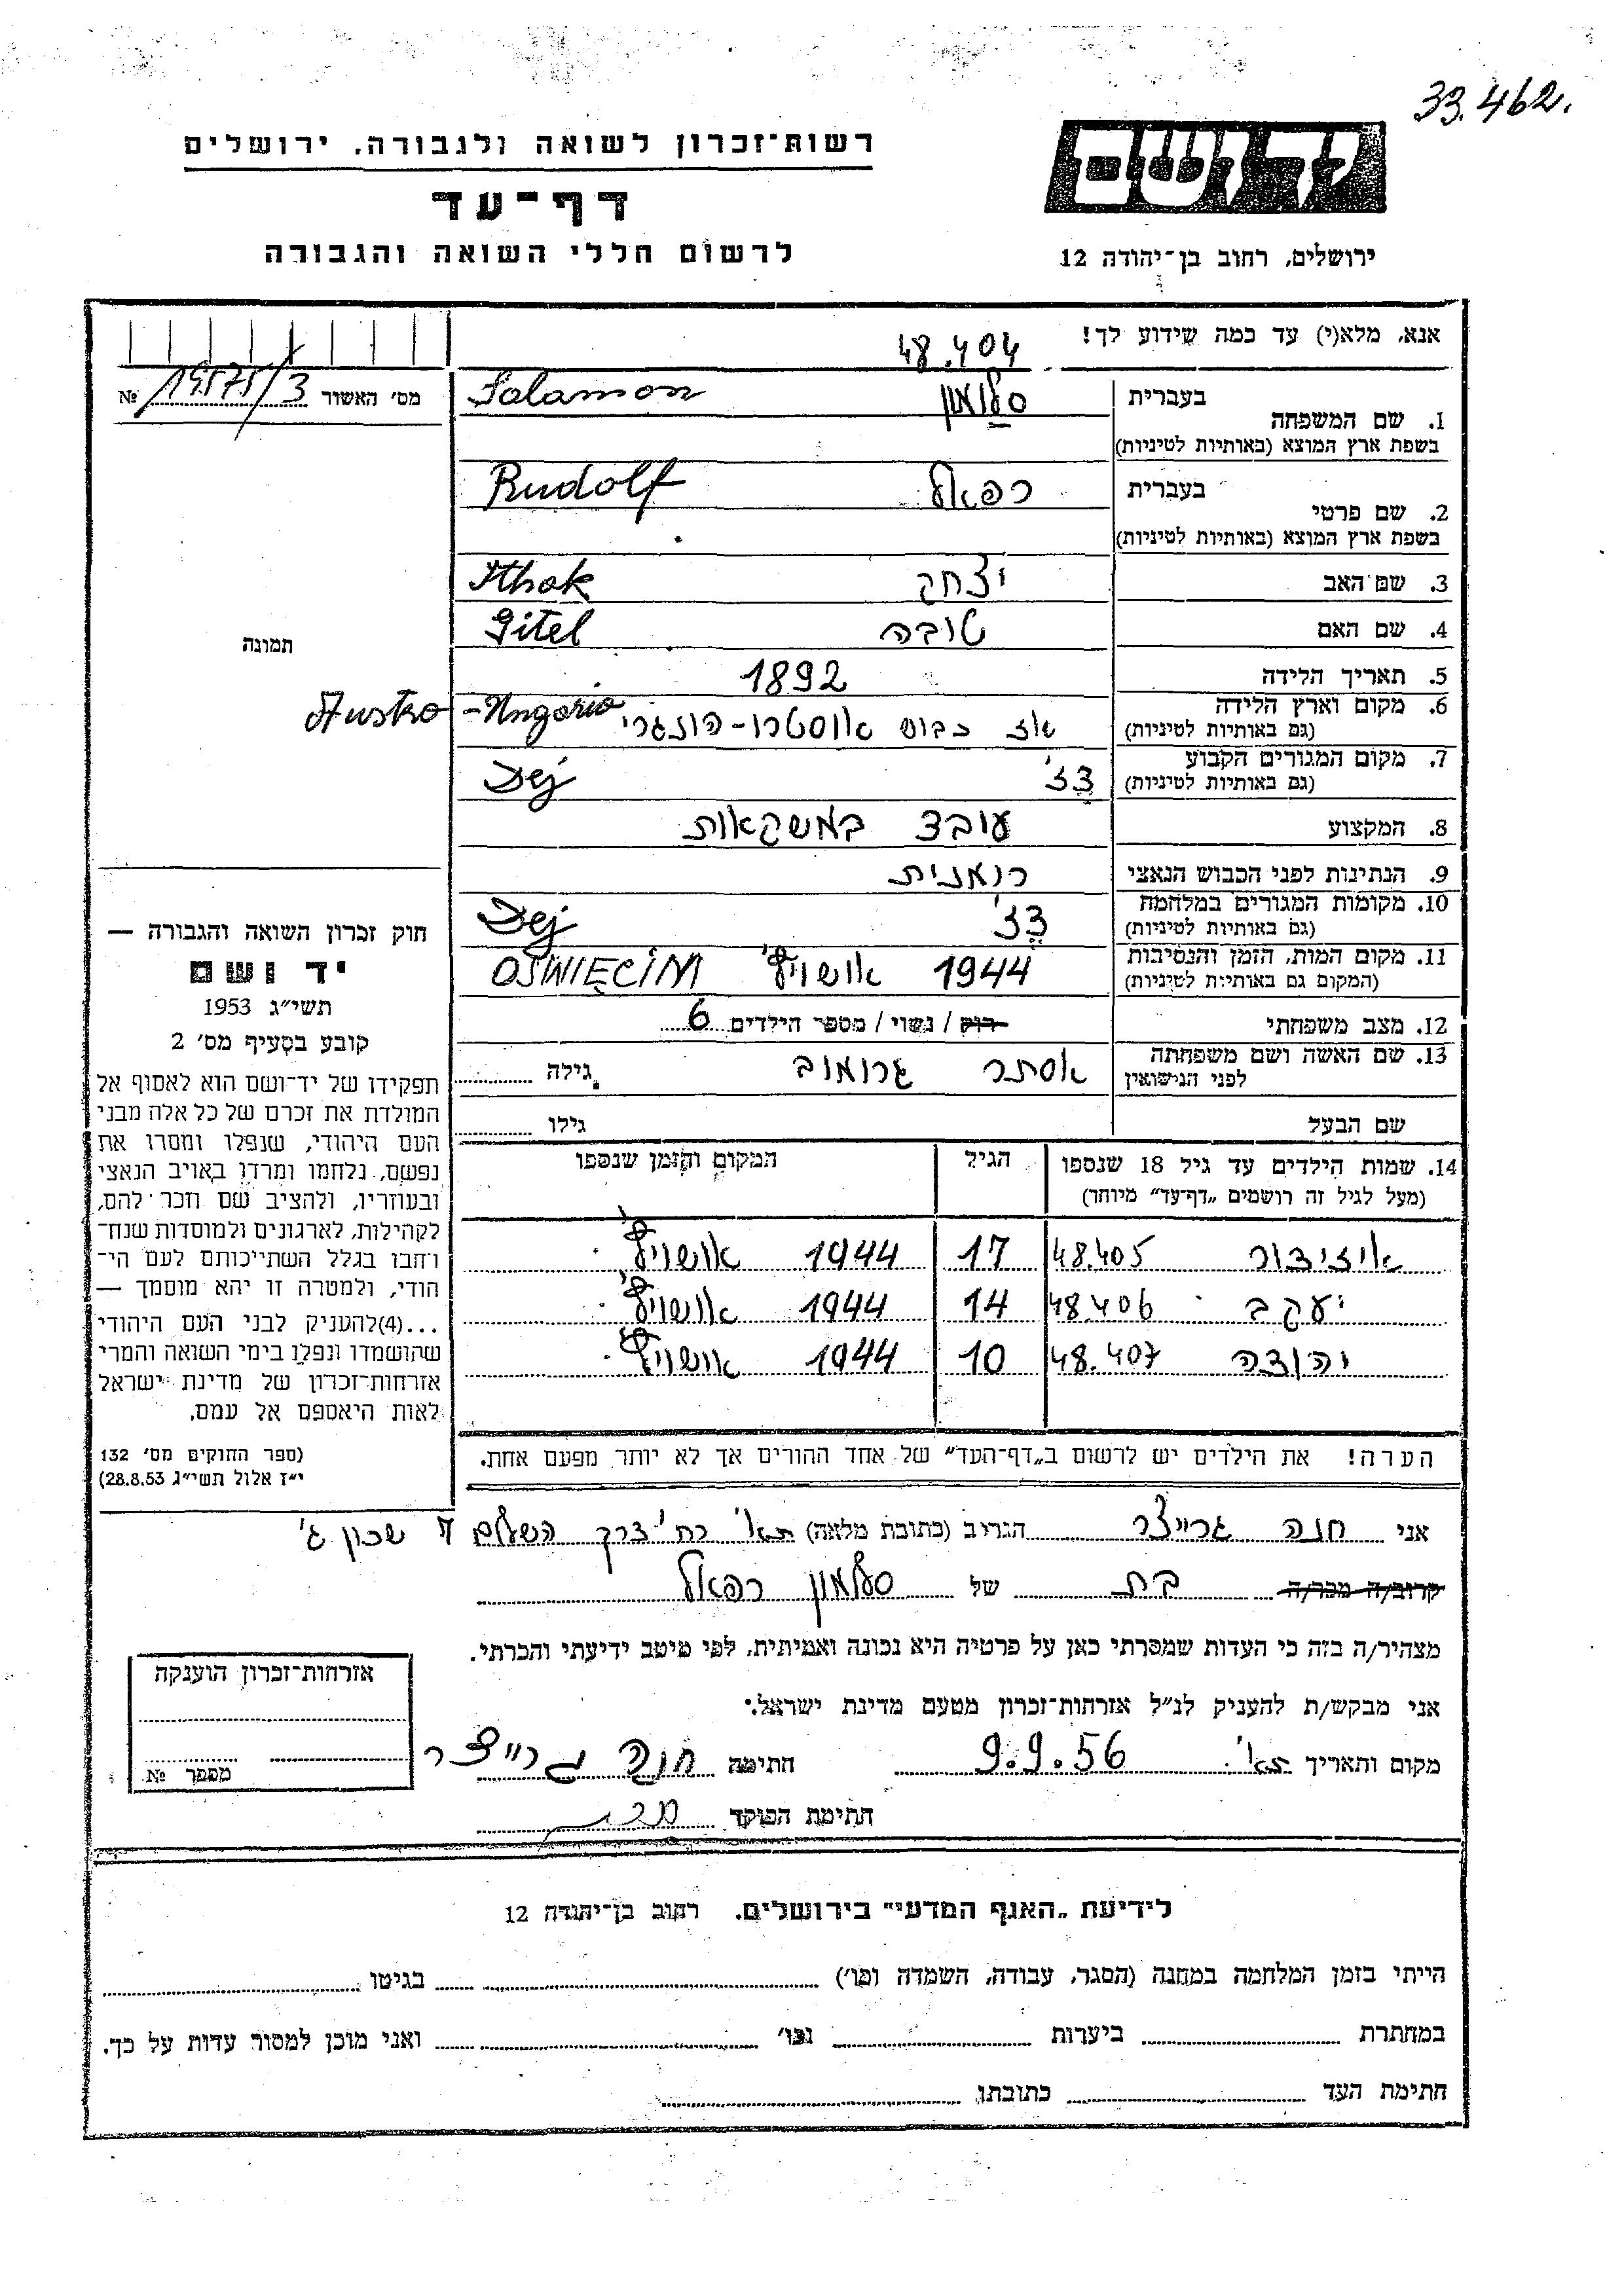 33.462.
רשות־זכרון לשואה ולגבורה, ירושלים
ידושם
דף־עד
לרשום חללי השואה והגבורה
ירושלים, רחוב בן־יהודה 12
אנא, מלא(י) עד כמה שידוע לך!
48.404
מס' האשור 19575/3 №
1. שם המשפחה בעברית סלומון Salamon
בשפת ארץ המוצא (באותיות לטיניות)
2. שם פרטי בעברית רפאל Rudolf
בשפת ארץ המוצא (באותיות לטיניות)
3. שם האב יצחק Ithak
4. שם האם טובה Gitel
תמונה
5. תאריך הלידה 1892
6. מקום וארץ הלידה
(גם באותיות לטיניות) אז כבוש אוסטרו-הונגרי Austro-Ungaria
7. מקום המגורים הקבוע
(גם באותיות לטיניות) דז' Dej
8. המקצוע עובד במשקאות
9. הנתינות לפני הכבוש הנאצי רומנית
10. מקומות המגורים במלחמה
(גם באותיות לטיניות) דז' Dej
11. מקום המות, הזמן והנסיבות
(המקום גם באותיות לטיניות) 1944 אושויץ OŚWIĘCIM
12. מצב משפחתי רוק / נשוי / מספר הילדים 6
13. שם האשה ושם משפחתה
לפני הנישואין אסתר גרומוב גילה
שם הבעל גילו
14. שמות הילדים עד גיל 18 שנספו הגיל המקום והזמן שנספו
(מעל לגיל זה רושמים „דף־עד" מיוחד)
איזידור 48.405 17 1944 אושויץ
יעקב 48.406 14 1944 אושויץ
יהודה 48.407 10 1944 אושויץ
הערה! את הילדים יש לרשום ב„דף־העד" של אחד ההורים אך לא יותר מפעם אחת.
חוק זכרון השואה והגבורה —
יד ושם
תשי"ג 1953
קובע בסעיף מס' 2
תפקידו של יד־ושם הוא לאסוף אל
המולדת את זכרם של כל אלה מבני
העם היהודי, שנפלו ומסרו את
נפשם, נלחמו ומרדו באויב הנאצי
ובעוזריו, ולהציב שם וזכר להם,
לקהילות, לארגונים ולמוסדות שנח־
רבו בגלל השתייכותם לעם הי־
הודי, ולמטרה זו יהא מוסמך —
...(4)להעניק לבני העם היהודי
שהושמדו ונפלו בימי השואה והמרי
אזרחות־זכרון של מדינת ישראל
לאות היאספם אל עמם.
(ספר החוקים מס' 132
י"ז אלול תשי"ג 28.8.53)
אני חנה גרייצר הגר/ב (כתובת מלאה) ת"א רח' דרך השלום שכון ג'
קרוב/ה מכר/ה בת של סלומון רפאל
מצהיר/ה בזה כי העדות שמסרתי כאן על פרטיה היא נכונה ואמיתית, לפי מיטב ידיעתי והכרתי.
אני מבקש/ת להעניק לנ"ל אזרחות־זכרון מטעם מדינת ישראל.
מקום ותאריך ת"א 9.9.56 חתימה חנה גרייצר
חתימת הפוקד
אזרחות־זכרון הוענקה
מספר №
לידיעת „האגף המדעי" בירושלים, רחוב בן־יהודה 12
הייתי בזמן המלחמה במחנה (הסגר, עבודה, השמדה וכו') בגיטו
במחתרת ביערות וכו' ואני מוכן למסור עדות על כך.
חתימת העד כתובתו